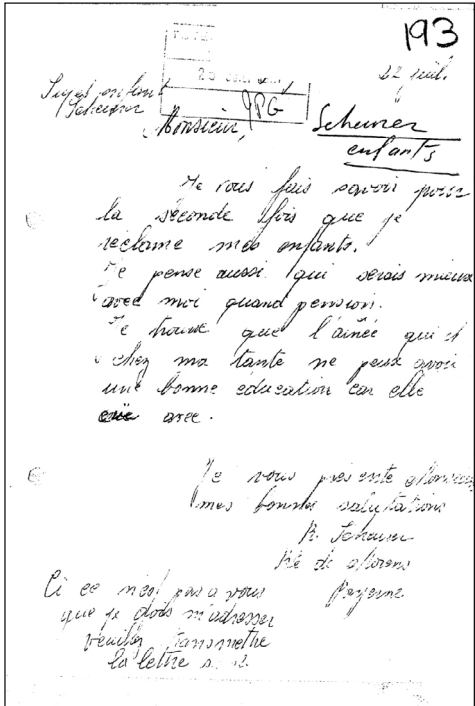 193
22 juil.
Sujet enfant
Scheurer
JPG
Monsieur,
Scheurer
enfants
Je vous fais savoir pour
la séconde fois que je
réclame mes enfants.
Je pense aussi qui serais mieux
avec moi quand pension.
Je trouve que l'ainée qui et
chez ma tante ne peux avoir
une bonne éducation car elle
avec.
Je vous présente Monsieur
mes bonnes salutations
R. Scheurer
Rte de Morens
Payerne
Ci ce n'est pas a vous
que je dois m'adresser
veuillez transmettre
la lettre s.